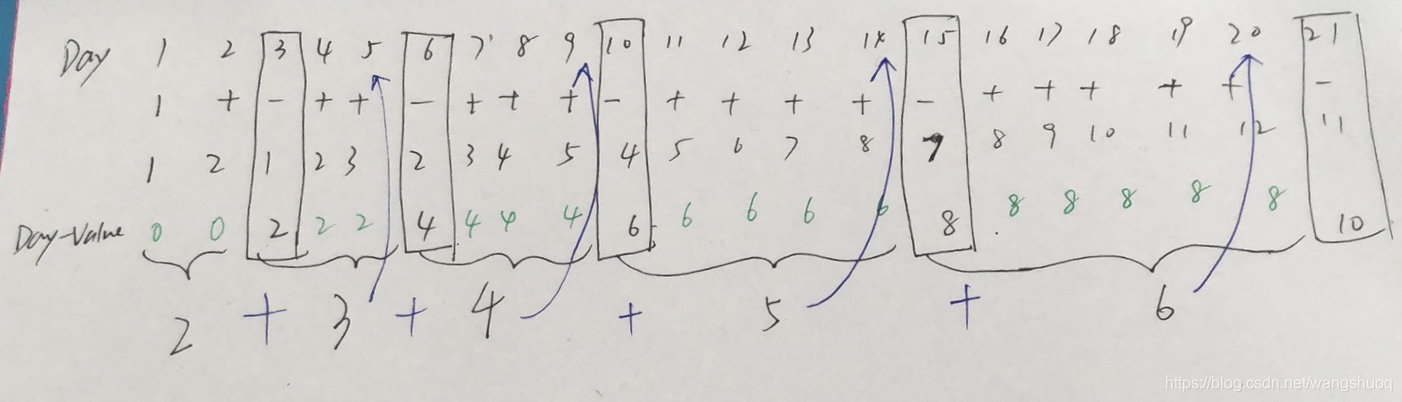 Day 1 2 3 4 5 6 7 8 9 10 11 12 13 14 15 16 17 18 19 20 21
1 + - + + - + + + - + + + + - + + + + + -
1 2 1 2 3 2 3 4 5 4 5 6 7 8 7 8 9 10 11 12 11
Day-Value 0 0 2 2 2 4 4 4 4 6 6 6 6 6 8 8 8 8 8 8 10
2 + 3 + 4 + 5 + 6
https://blog.csdn.net/wangshuoq